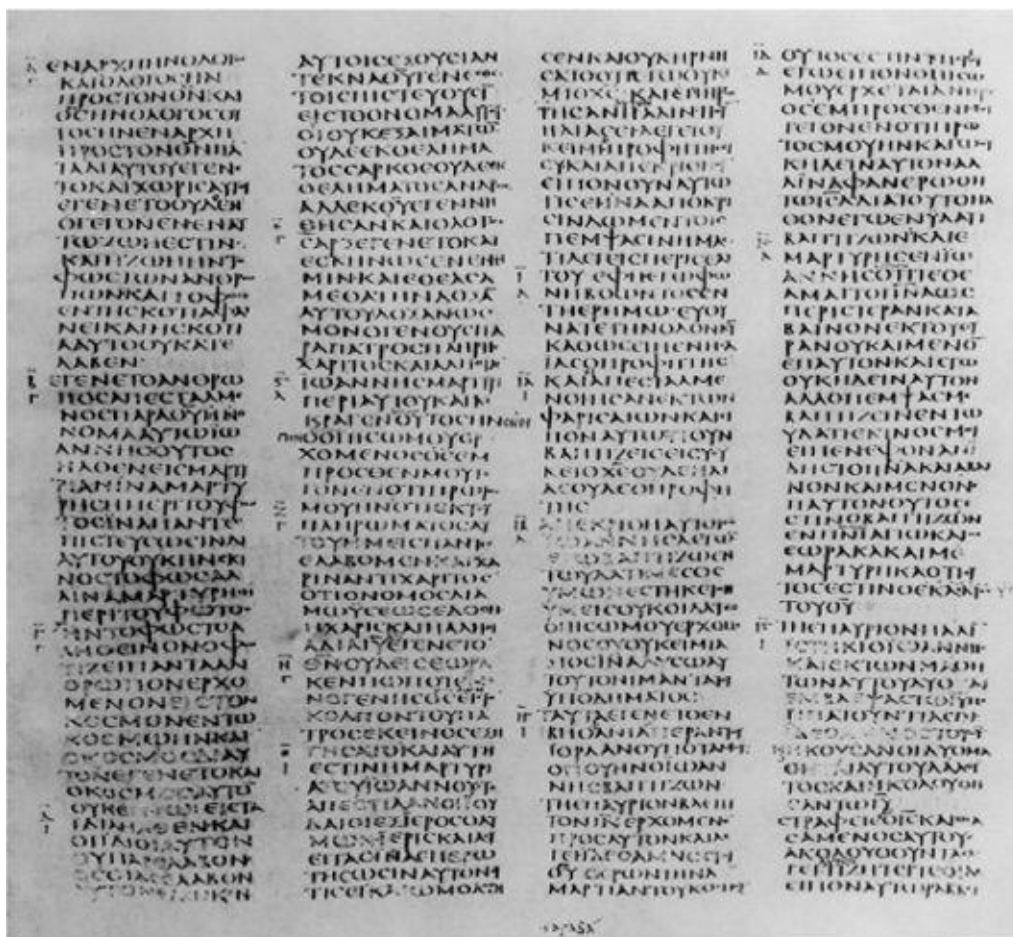 ΕΝΑΡΧΗΗΝΟΛΟΓΟ
ΚΑΙΟΛΟΓΟCΗΝ
ΠΡΟCΤΟΝΘΝΚΑΙ
ΘCΗΝΟΛΟΓΟCΟΥ
ΤΟCΗΝΕΝΑΡΧΗ
ΠΡΟCΤΟΝΘΝΠΑ
ΤΑΔΙΑΥΤΟΥΕΓΕΝΕ
ΤΟΚΑΙΧΩΡΙCΑΥΤΟΥ
ΕΓΕΝΕΤΟΟΥΔΕΝ
ΟΓΕΓΟΝΕΝΕΝΑΥ
ΤΩΖΩΗΕCΤΙΝ·
ΚΑΙΗΖΩΗΗΝΤΟ
ΦΩCΤΩΝΑΝΘΡΩ
ΠΩΝΚΑΙΤΟΦΩC
ΕΝΤΗCΚΟΤΙΑΦΑΙ
ΝΕΙΚΑΙΗCΚΟΤΙ
ΑΑΥΤΟΟΥΚΑΤΕ
ΛΑΒΕΝ·
ΕΓΕΝΕΤΟΑΝΘΡΩ
ΠΟCΑΠΕCΤΑΛΜΕ
ΝΟCΠΑΡΑΘΥΗΝΟ
ΝΟΜΑΑΥΤΩΙΩ
ΑΝΝΗCΟΥΤΟC
ΗΛΘΕΝΕΙCΜΑΡΤΥ
ΡΙΑΝΙΝΑΜΑΡΤΥ
ΡΗCΗΠΕΡΙΤΟΥΦΩ
ΤΟCΙΝΑΠΑΝΤΕC
ΠΙCΤΕΥCΩCΙΝΔΙ
ΑΥΤΟΥΟΥΚΗΝΕΚΙ
ΝΟCΤΟΦΩCΑΛ
ΛΙΝΑΜΑΡΤΥΡΗCΗ
ΠΕΡΙΤΟΥΦΩΤΟC
ΗΝΤΟΦΩCΤΟΑ
ΛΗΘΕΙΝΟΝΟΦΩ
ΤΙΖΕΙΠΑΝΤΑΑΝ
ΘΡΩΠΟΝΕΡΧΟ
ΜΕΝΟΝΕΙCΤΟΝ
ΚΟCΜΟΝΕΝΤΩ
ΚΟCΜΩΗΝΚΑΙ
ΟΚΟCΜΟCΔΙΑΥ
ΤΟΝΕΓΕΝΕΤΟΚΑΙ
ΟΚΟCΜΟCΑΥΤΟ
ΟΥΚΕΓΝΩΕΙCΤΑ
ΙΔΙΑΗΛΘΕΝΚΑΙ
ΟΙΙΔΙΟΙΑΥΤΟΝ
ΟΥΠΑΡΕΛΑΒΟΝ
ΟCΟΙΔΕΕΛΑΒΟΝ
ΑΥΤΟΝΕΔΩΚΕΝ
ΑΥΤΟΙCΕΞΟΥCΙΑΝ
ΤΕΚΝΑΘΥΓΕΝΕCΘΑΙ
ΤΟΙCΠΙCΤΕΥΟΥCΙ
ΕΙCΤΟΟΝΟΜΑΑΥΤΟΥ
ΟΙΟΥΚΕΞΑΙΜΑΤΩ
ΟΥΔΕΕΚΘΕΛΗΜΑ
ΤΟCCΑΡΚΟCΟΥΔΕΕΚ
ΘΕΛΗΜΑΤΟCΑΝΔΡΟC
ΑΛΛΕΚΘΥΕΓΕΝΝΗ
ΘΗCΑΝΚΑΙΟΛΟΓΟC
CΑΡΞΕΓΕΝΕΤΟΚΑΙ
ΕCΚΗΝΩCΕΝΕΝΗ
ΜΙΝΚΑΙΕΘΕΑCΑ
ΜΕΘΑΤΗΝΔΟΞΑ
ΑΥΤΟΥΔΟΞΑΝΩC
ΜΟΝΟΓΕΝΟΥCΠΑ
ΡΑΠΑΤΡΟCΠΛΗΡΗC
ΧΑΡΙΤΟCΚΑΙΑΛΗΘΙΑC
ΙΩΑΝΝΗCΜΑΡΤΥΡΙ
ΠΕΡΙΑΥΤΟΥΚΑΙΚΕ
ΚΡΑΓΕΝΟΥΤΟCΗΝΟΝΕΙΠΟΝ
ΟΟΠΙCΩΜΟΥΕΡ
ΧΟΜΕΝΟCΟCΕΜ
ΠΡΟCΘΕΝΜΟΥΓΕ
ΓΟΝΕΝΟΤΙΠΡΩΤΟC
ΜΟΥΗΝΟΤΙΕΚΤΟΥ
ΠΛΗΡΩΜΑΤΟCΑΥ
ΤΟΥΗΜΕΙCΠΑΝΤΕC
ΕΛΑΒΟΜΕΝΚΑΙΧΑ
ΡΙΝΑΝΤΙΧΑΡΙΤΟC
ΟΤΙΟΝΟΜΟCΔΙΑ
ΜΩΥCΕΩCΕΔΟΘΗ
ΗΧΑΡΙCΚΑΙΗΑΛΗΘΙ
ΑΔΙΑΙΥΕΓΕΝΕΤΟ
ΘΝΟΥΔΕΙCΕΩΡΑ
ΚΕΝΠΩΠΟΤΕ
ΝΟΓΕΝΗCΘCΕΙC
ΚΟΛΠΟΝΤΟΥΠΑ
ΤΡΟCΕΚΕΙΝΟCΕΞΗ
ΓΗCΑΤΟΚΑΙΑΥΤΗ
ΕCΤΙΝΗΜΑΡΤΥΡΙ
ΑΤΟΥΙΩΑΝΝΟΥΟΤΕ
ΑΠΕCΤΙΛΑΝΟΙΙΟΥ
ΔΑΙΟΙΕΞΙΕΡΟCΟΛΥ
ΜΩΝΙΕΡΙCΚΑΙΛΕΥ
ΕΙΤΑCΙΝΑΕΠΕΡΩ
ΤΗCΩCΙΝΑΥΤΟΝCΥ
ΤΙCΕΙΚΑΙΩΜΟΛΟΓΗ
CΕΝΚΑΙΟΥΚΗΡΝΗ
CΑΤΟΟΤΙΕΓΩΟΥΚΕΙ
ΜΙΟΧCΚΑΙΕΠΗΡΩ
ΤΗCΑΝΠΑΛΙΝΤΙ
ΗΛΙΑCΕΙΛΕΓΕΙΟΥΚ
ΕΙΜΙΠΡΟΦΗΤΗCΕΙ
CΥΚΑΙΑΠΕΚΡΙΘΗΟΥ
ΕΙΠΟΝΟΥΝΑΥΤΩ
ΤΙCΕΙΙΝΑΑΠΟΚΡΙ
CΙΝΔΩΜΕΝΤΟΙC
ΠΕΜΨΑCΙΝΗΜΑC
ΤΙΛΕΓΕΙCΠΕΡΙCΕΑΥ
ΤΟΥΕΦΗΕΓΩΦΩ
ΝΗΒΟΩΝΤΟCΕΝ
ΤΗΕΡΗΜΩΕΥΘΥ
ΝΑΤΕΤΗΝΟΔΟΝΚΥ
ΚΑΘΩCΕΙΠΕΝΗC
ΙΑCΟΠΡΟΦΗΤΗC
ΚΑΙΑΠΕCΤΑΛΜΕ
ΝΟΙΗCΑΝΕΚΤΩΝ
ΦΑΡΙCΑΙΩΝΚΑΙΕΙ
ΠΟΝΑΥΤΩΤΙΟΥΝ
ΒΑΠΤΙΖΕΙCΕΙCΥΟΥ
ΚΕΙΟΧCΟΥΔΕΗΛΙ
ΑCΟΥΔΕΟΠΡΟΦΗ
ΤΗC
ΑΠΕΚΡΙΘΗΑΥΤΟΙC
ΙΩΑΝΝΗCΛΕΓΩ
ΕΓΩΒΑΠΤΙΖΩΕΝ
ΤΩΥΔΑΤΙΜΕCΟC
ΥΜΩΝΕCΤΗΚΕΙΟΝ
ΥΜΕΙCΟΥΚΟΙΔΑΤΕ
ΟΠΙCΩΜΟΥΕΡΧΟΜΕ
ΝΟCΟΥΟΥΚΕΙΜΙΑ
ΞΙΟCΙΝΑΛΥCΩΑΥ
ΤΟΥΤΟΝΙΜΑΝΤΑΤΟΥ
ΥΠΟΔΗΜΑΤΟC
ΤΑΥΤΑΕΓΕΝΕΤΟΕΝ
ΒΗΘΑΝΙΑΠΕΡΑΝΤΟΥ
ΙΟΡΔΑΝΟΥΠΟΤΑΜΟΥ
ΟΠΟΥΗΝΟΙΩΑΝ
ΝΗCΒΑΠΤΙΖΩΝ
ΤΗΕΠΑΥΡΙΟΝΒΛΕΠΕΙ
ΤΟΝΙΝΕΡΧΟΜΕΝΟ
ΠΡΟCΑΥΤΟΝΚΑΙΛΕ
ΓΕΙΙΔΕΟΑΜΝΟCΤΟΥ
ΘΥΟΕΡΩΝΤΗΝΑ
ΜΑΡΤΙΑΝΤΟΥΚΟCΜΟΥ
ΟΥΤΟCΕCΤΙΝΥΠΕΡΟΥ
ΕΓΩΕΙΠΟΝΟΠΙCΩ
ΜΟΥΕΡΧΕΤΑΙΑΝΗΡ
ΟCΕΜΠΡΟCΘΕΝΜΟΥ
ΓΕΓΟΝΕΝΟΤΙΠΡΩ
ΤΟCΜΟΥΗΝΚΑΓΩΟΥ
ΚΗΔΕΙΝΑΥΤΟΝΑΛ
ΛΙΝΑΦΑΝΕΡΩΘΗ
ΤΩΙCΛΔΙΑΤΟΥΤΟΗΛ
ΘΟΝΕΓΩΕΝΥΔΑΤΙ
ΒΑΠΤΙΖΩΝΚΑΙΕ
ΜΑΡΤΥΡΗCΕΝΙΩ
ΑΝΝΗCΟΤΙΤΕΘΕ
ΑΜΑΙΤΟΠΝΑΩC
ΠΕΡΙCΤΕΡΑΝΚΑΤΑ
ΒΑΙΝΟΝΕΚΤΟΥΟΥ
ΡΑΝΟΥΚΑΙΜΕΝΟ
ΕΠΑΥΤΟΝΚΑΙΕΓΩ
ΟΥΚΗΔΕΙΝΑΥΤΟΝ
ΑΛΛΟΠΕΜΨΑCΜΕ
ΒΑΠΤΙΖΕΙΝΕΝΤΩ
ΥΔΑΤΙΕΚΙΝΟCΜΟΙ
ΕΙΠΕΝΕΦΟΝΑΝΙ
ΔΗCΤΟΠΝΑΚΑΤΑΒΑΙ
ΝΟΝΚΑΙΜΕΝΟΝΕ
ΠΑΥΤΟΝΟΥΤΟCΕ
CΤΙΝΟΒΑΠΤΙΖΩΝ
ΕΝΠΝΙΑΓΙΩΚΑΓΩ
ΕΩΡΑΚΑΚΑΙΜΕ
ΜΑΡΤΥΡΗΚΑΟΤΙΟΥ
ΤΟCΕCΤΙΝΟΕΚΛΕΚΤΟC
ΤΟΥΘΥ
ΤΗΕΠΑΥΡΙΟΝΠΑΛΙ
ΙCΤΗΚΙΟΙΩΑΝΝΗC
ΚΑΙΕΚΤΩΝΜΑΘΗ
ΤΩΝΑΥΤΟΥΔΥΟΚΑΙ
ΕΜΒΛΕΨΑCΤΩΙΥΠΕ
ΡΙΠΑΤΟΥΝΤΙΛΕΓΕΙ
ΗΚΟΥCΑΝΟΙΔΥΟΜΑ
ΘΗΤΑΙΑΥΤΟΥΛΑΛΟΥ
ΤΟCΚΑΙΗΚΟΛΟΥΘΗ
CΑΝΤΩΙΥ
CΤΡΑΦΕΙCΔΕΟΙCΚΑΙΘΕΑ
CΑΜΕΝΟCΑΥΤΟΥC
ΑΚΟΛΟΥΘΟΥΝΤΑC
ΛΕΓΕΙΤΙΖΗΤΕΙΤΕΟΙΔΕ
ΕΙΠΟΝΑΥΤΩΡΑΒΒΙ